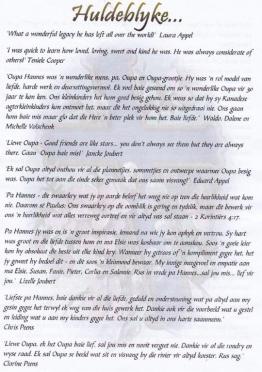 Huldeblyke...
'What a wonderful legacy he has left all over the world!' Laura Appel
'I was quick to learn how loved, loving, sweet and kind he was. He was always considerate of
others!' Teniele Cooper
'Oupa Hannes was 'n wonderlike mens, pa, Oupa en Oupa-grootjie. Hy was 'n rol model van
liefde, harde werk en deursettingsvermoë. Ek voel baie geseën om so 'n wonderlike oupa vir 30
jaar te ken. Ons kleinkinders het hom goed besig gehou. Ek wens so dat hy sy Kanadese
agterkleinkinders kon ontmoet het, maar dit het ongelukkig nie so uitgedraai nie. Ons gaan
hom baie mis maar glo dat die Here 'n beter plek vir hom het. Baie liefde.' Waldo, Dalene en
Michelle Volschenk
'Liewe Oupa - Good friends are like stars... you don't always see them but they are always
there. Gaan Oupa baie mis!' Joncke Joubert
Ek sal Oupa altyd onthou vir al die plannetjies, sommetjies en ontwerpe waarmee Oupa besig
was. Oupa het tot aan die einde seker gemaak dat ons saam visvang!' Eduard Appel
Pa Hannes - die swaarkry wat jy op aarde beleef het weeg nie op teen die harlikheid wat kom
nie. Daarom sê Paulus: Ons swaarkry op die oomblik is gering en tydelik, maar dit bewerk vir
ons 'n harlikheid wat alles verreweg oortref en vir altyd sal staan - 2 Korintiërs 4:17.
Pa Hannes jy was en is 'n groot inspirasie, iemand na wie jy kon opkyk en vertrou. Sy hart
was groot en die liefde tussen hom en ma Elsie was kosbaar om te aanskou. Soon 'n goeie leier
ken hy absoluut die beste uit elke kind kry. Wanneer hy getroos of 'n kompliment gegee het, het
jy geweet hy bedoel dit - en dit soos 'n kleinnood bewaar. My innige meegevoel en empatie aan
ma Elsie, Susan, Faure, Pieter, Corlia en Salomé. Rus in vrede pa Hannes...sal jou mis... lief vir
jou.' Lizelle Joubert
'Liefste pa Hannes, baie dankie vir al die liefde, geduld en ondersteuning wat pa altyd aan my
gesin gegee het terwyl ek weg van die huis gewerk het. Dankie ook vir die voorbeeld wat u gestel
en leiding wat u aan my kinders gegee het. Ons sal u altyd in ons harte saamneem.'
Chris Pems
Liewe Oupa, ek het Oupa baie lief, sal jou mis en nooit vergeet nie. Dankie vir al die rondry en
wyse raad. Ek sal Oupa se beeld wat sit en visvang by die rivier vir altyd koester. Rus sag.'
Clarine Pems